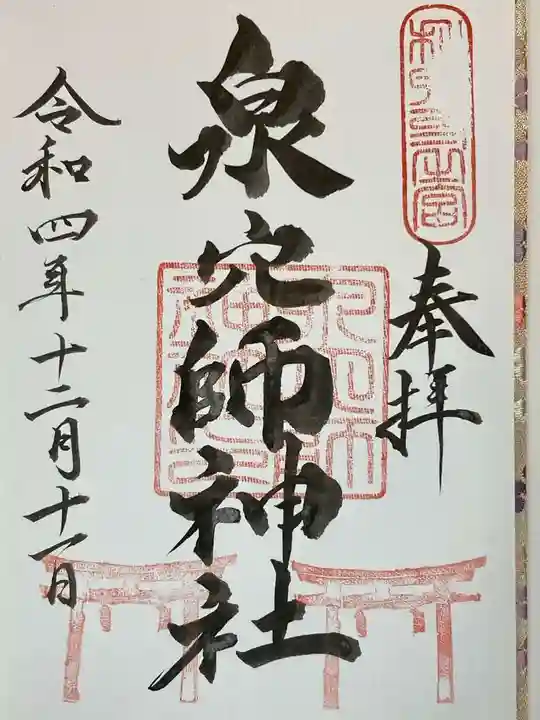 奉拝
泉穴師神社
令和四年十二月十一日